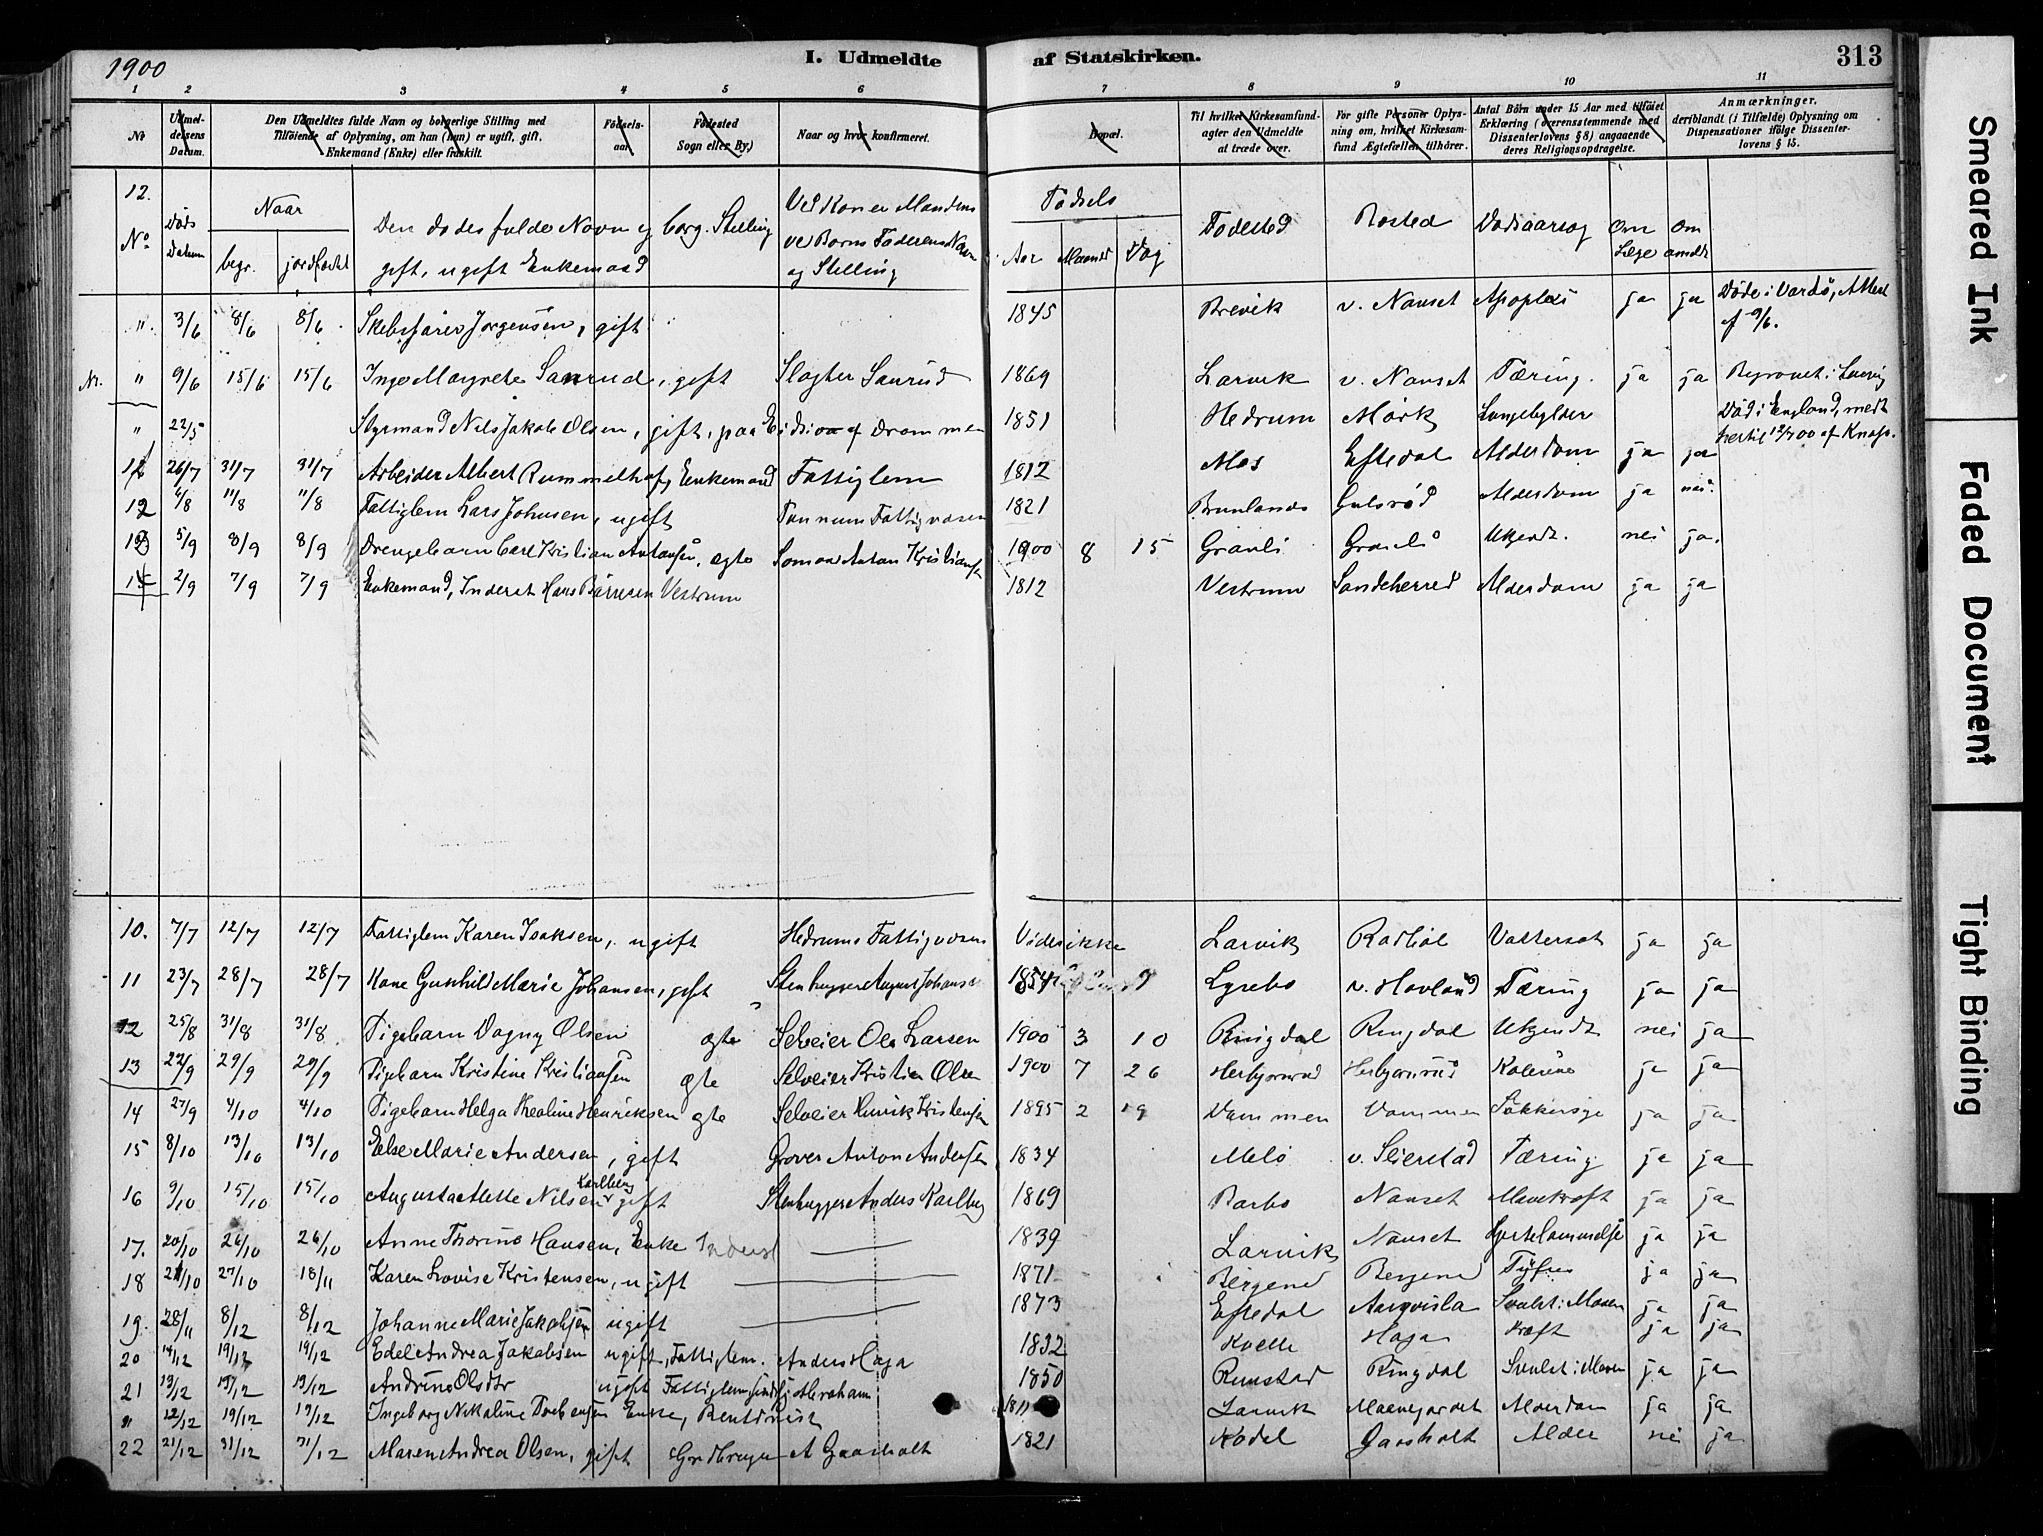 1900
I. Udmeldte
af Statskirken.
313
1 2 3 4 5 6 7 8 9 10 11
No
Udmeldelsens Datum.
Den Udmeldtes fulde Navn og borgerlige Stilling med Tilføiende af Oplysning, om han (hun) er ugift, gift, Enkemand (Enke) eller fraskilt.
Fødselsaar.
Fødested Sogn eller By.)
Naar og hvor konfirmeret.
Bopæl.
Til hvilket Kirkesamfund agter den Udmeldte at træde over.
For gifte Personer Oplysning om, hvilket Kirkesamfund Ægtefællen tilhører.
Antal Børn under 15 Aar med tilføiet Erklæring (overensstemmende med Dissenterlovens § 8) angaaende deres Religionsopdragelse.
Anmærkninger.
deriblandt (i Tilfælde) Oplysning om Dispensationer ifølge Dissenterlovens § 15.
12.
No
Døds Datum
Naar
begr. jordfæstet
Den dødes fulde Navn og borg. Stilling
gift, ugift Enkemand
Ved Koner Mandens
ve Børns Faderens Navn
og Stilling
Fødsels
Aar Maaned Dag
Fødested Bosted Dødsaarsag
Om Læge
Om anmeldt
" 3/6 8/6 8/6 Skibsfører Jørgensen, gift 1845 Brevik v. Nanset Apoplexi ja ja Døde i Vardø, Attest af 9/6.
Nr. " 9/6 15/6 15/6 Inge Margrete Sanrud, gift Slagter Sanrud 1869 Larvik v. Nanset Tæring. ja ja Begravet i Larvig
" 22/5 Styrmand Nils Jakob Olsen, gift, paa Eidivo af Drammen 1851 Hedrum Mørk Død i England, meldt hertil 12/7 00 af Knap.
26/7 31/7 31/7 Arbeider Albert Rummelhof, Enkemand Fattiglem 1812 Mos Eftedal Alderdom ja ja
12 6/8 11/8 11/8 Fattiglem Lars Johnsen, ugift Tønnum Fattigvæsen 1821 Brunlanes Gulsrød Alderdom ja nei
13 5/9 8/9 8/9 Drengebarn Carl Kristian Antonsen, ægte Sømand Anton Kristiansen 1900 8 15 Granli Granli Ukjendt. nei ja.
14 2/9 7/9 7/9 Enkemand, Inderst Hans Børresen Vestrum 1812 Vestrum Sandeherred Alderdom ja ja
10. 7/7 12/7 12/7 Fattiglem Karen Isaksen, ugift Hedrums Fattigvæsen Vides ikke Larvik Rødbøl Vattersot ja ja
11 23/7 28/7 28/7 Kone Gunhild Marie Johansen, gift Stenhugger August Johansen 1854 Lysebo v. Hovland Tæring ja ja
12 25/8 31/8 31/8 Pigebarn Dagny Olsen ægte Selveier Ole Larsen 1900 3 10 Ringdal Ringdal Ukjendt nei ja
13 22/9 29/9 29/9 Pigebarn Kristine Kristiansen ægte Selveier Kristian Olsen 1900 7 26 Herbjørnrud Herbjørnrud Kolerine ja ja
14 27/9 4/10 4/10 Pigebarn Helga Thealine Henriksen ægte Selveier Henrik Kristensen 1895 2 19 Vammen Vammen Sukkersyge ja ja
15 8/10 13/10 13/10 Else Marie Andersen, gift Graver Anton Andersen 1834 Melø v. Seierstad Tæring ja ja
Karlberg
16 9/10 15/10 15/10 Augusta Alette Nilsen gift Stenhugger Anders Karlberg 1869 Barbo Nanset Mavekræft ja ja
17. 20/10 26/10 26/10 Anne Thorine Hansen, Enke Inderst 1839 Larvik Nanset Hjertelammelse ja ja
18 21/10 27/10 18/11 Karen Lovise Kristensen, ugift 1871 Bergene Bergene Tyfus ja ja
19. 28/11 8/12 8/12 Johanne Marie Jakobsen ugift 1873 Eftedal Aarqvisla Svulst i Maven ja ja
20 14/12 19/12 19/12 Edel Andrea Jakobsen ugift, Fattiglem. Anders Haga 1832 Kvelle Haga Kræft ja ja
21 13/12 19/12 19/12 Andrine Olsdtr ugift Fattiglem 1850 Rimstad Ringdal Svulst i Maven ja ja
" 12/12 19/12 19/12 Ingeborg Nikoline Torbensen Enke, 1811 Larvik Alderdom ja ja
22 21/12 31/12 31/12 Maren Andrea Olsen, gift Grdbruger A Gaasholt 1821 Kodal Gaasholt Alder nei ja
Smeared Ink
Faded Document
Tight Binding